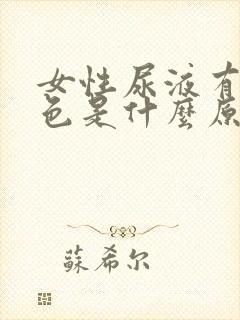 女性尿液有
色是什麼原
蘇希尔